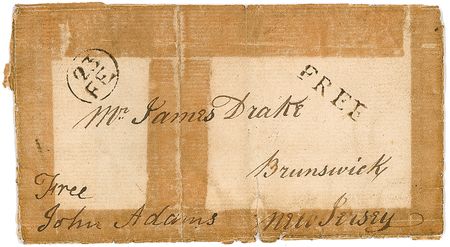 23
FE
FREE
Mr. James Drake
Brunswick
New Jersey
Free
John Adams